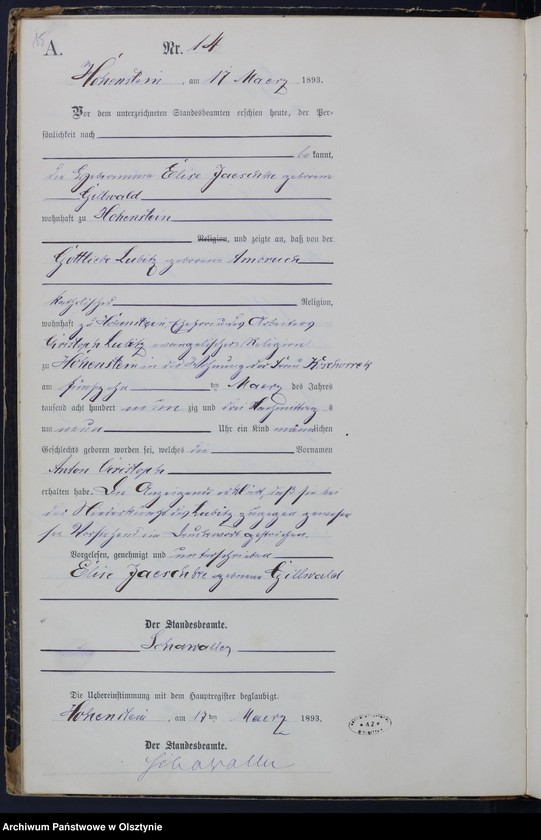 A.
Nr. 14
Hohenstein, am 17 Maerz 1893.
Vor dem unterzeichneten Standesbeamten erschien heute, der Per-
sönlichkeit nach
be kannt,
die Hebeamme Elise Jaeschke geborene
Gillwald
wohnhaft zu Hohenstein
Religion, und zeigte an, daß von der
Gottliebe Lubitz geborene
katholischer Religion,
wohnhaft zu Hohenstein, Ehefrau des Arbeiters
Christoph Lubitz evangelischer Religion
zu Hohenstein in der Wohnung der Frau
am fünfzehn ten Maerz des Jahres
tausend acht hundert neun zig und drei Nachmittag s
um neun Uhr ein Kind männlichen
Geschlechts geboren worden sei, welches die Vornamen
Anton Christoph
erhalten habe. Die Anzeigende erklärt, daß sie bei
der Niederkunft der Lubitz zugegen gewesen
sei. Vorstehend ein Druckwort gestrichen.
Vorgelesen, genehmigt und unterschrieben
Elise Jaeschke geborene Gillwald
Der Standesbeamte.
Schawaller
Die Uebereinstimmung mit dem Hauptregister beglaubigt.
Hohenstein, am 17 ten Maerz 1893.
Der Standesbeamte.
Schawaller
Archiwum Państwowe w Olsztynie